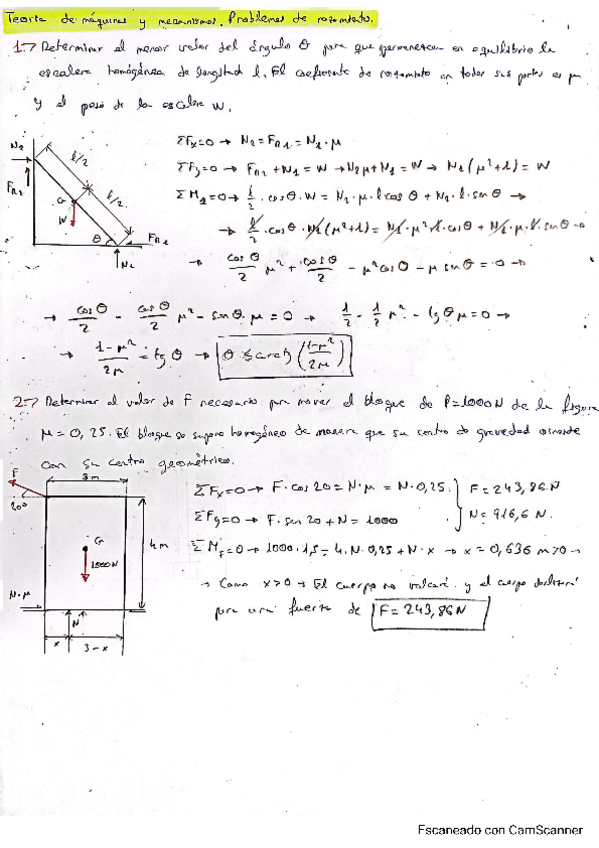 Teoría de máquinas y mecanismos. Problemas de rozamiento.
1-> Determinar el menor valor del ángulo θ para que permanezcan en equilibrio la
escalera homogénea de longitud l. El coeficiente de rozamiento en todas sus partes es μ
y el peso de la escalera W.
ΣFx=0 → N2 = FR1 = N1·μ
ΣFy=0 → FR2 + N1 = W → N2μ + N1 = W → N1(μ²+1) = W
ΣM1=0 → l/2 · cosθ·W = N2·μ·l cosθ + N2·l·senθ →
→ l/2 · cosθ · N1(μ²+1) = N1·μ²·l·cosθ + N1·μ·l·senθ →
→ cosθ/2 μ² + cosθ/2 − μ²cosθ − μ senθ = 0 →
→ cosθ/2 − cosθ/2 μ² − senθ·μ = 0 → 1/2 − 1/2 μ² − tgθ μ = 0 →
→ 1−μ²/2μ = tgθ → θ ≤ arctg (1−μ²/2μ)
N2
l/2
FR2
l/2
G
W
θ
FR1
N1
2-> Determinar el valor de F necesario para mover el bloque de P=1000N de la figura
μ = 0,25. El bloque se supone homogéneo de manera que su centro de gravedad coincide
con su centro geométrico.
F
3m
20º
G
1000N
4m
N·μ
N
x
3-x
ΣFx=0 → F·cos20 = N·μ = N·0,25
ΣFy=0 → F·sen20 + N = 1000
F = 243,86N
N = 916,6 N.
ΣMF=0 → 1000·1,5 = 4·N·0,25 + N·x → x = 0,636 m > 0 →
→ Como x>0 → El cuerpo no volcará y el cuerpo deslizará
para una fuerza de F = 243,86N
Escaneado con CamScanner